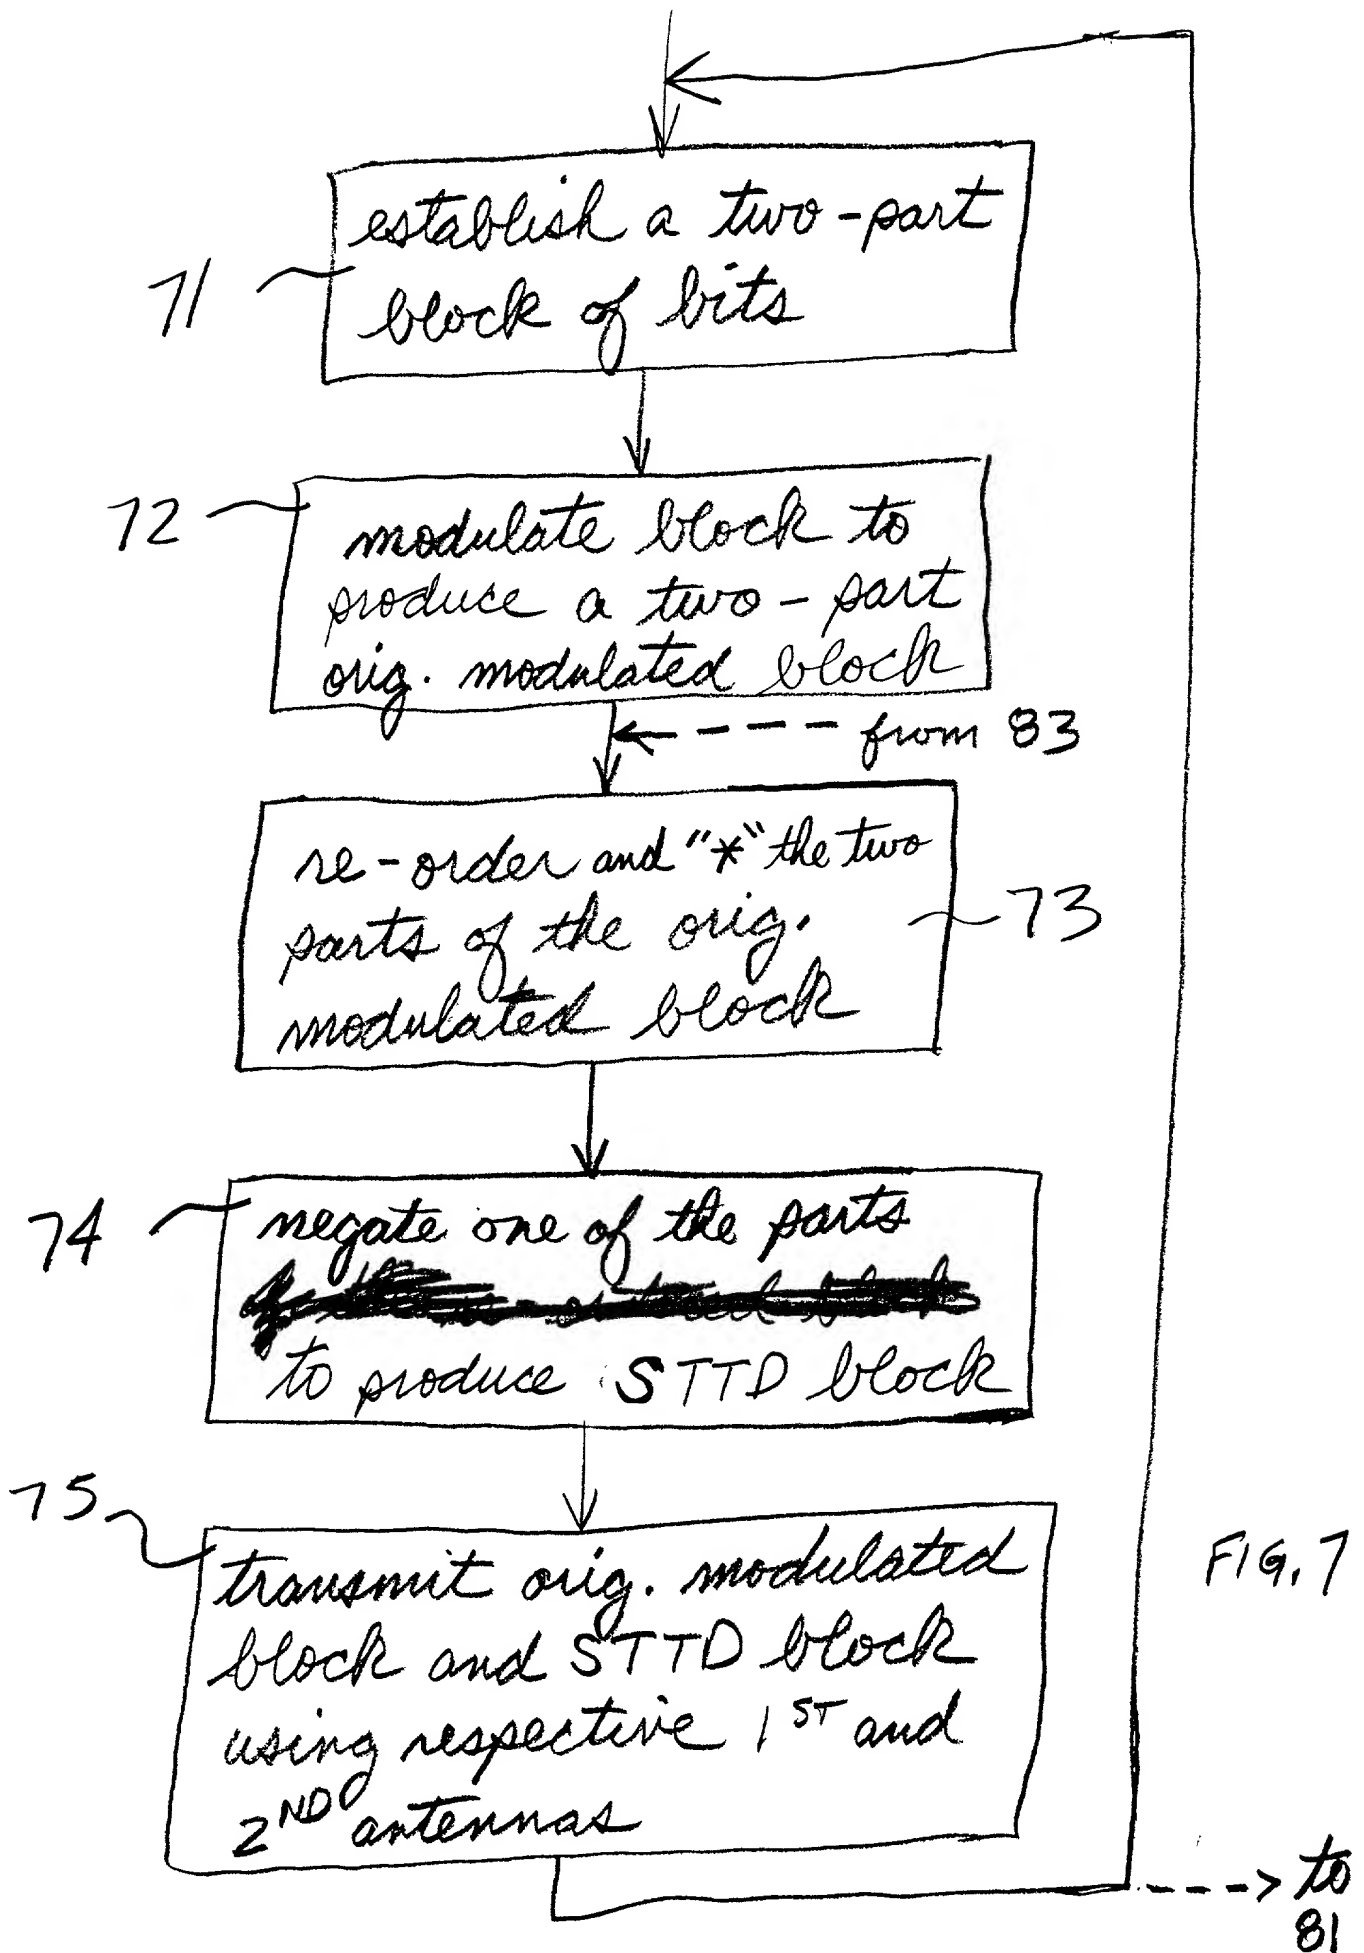 71
establish a two-part
block of bits
72
modulate block to
produce a two-part
orig. modulated block
from 83
re-order and "*" the two
parts of the orig.
modulated block
73
74
negate one of the parts
to produce STTD block
75
transmit orig. modulated
block and STTD block
using respective 1ST and
2ND antennas
FIG. 7
to
81